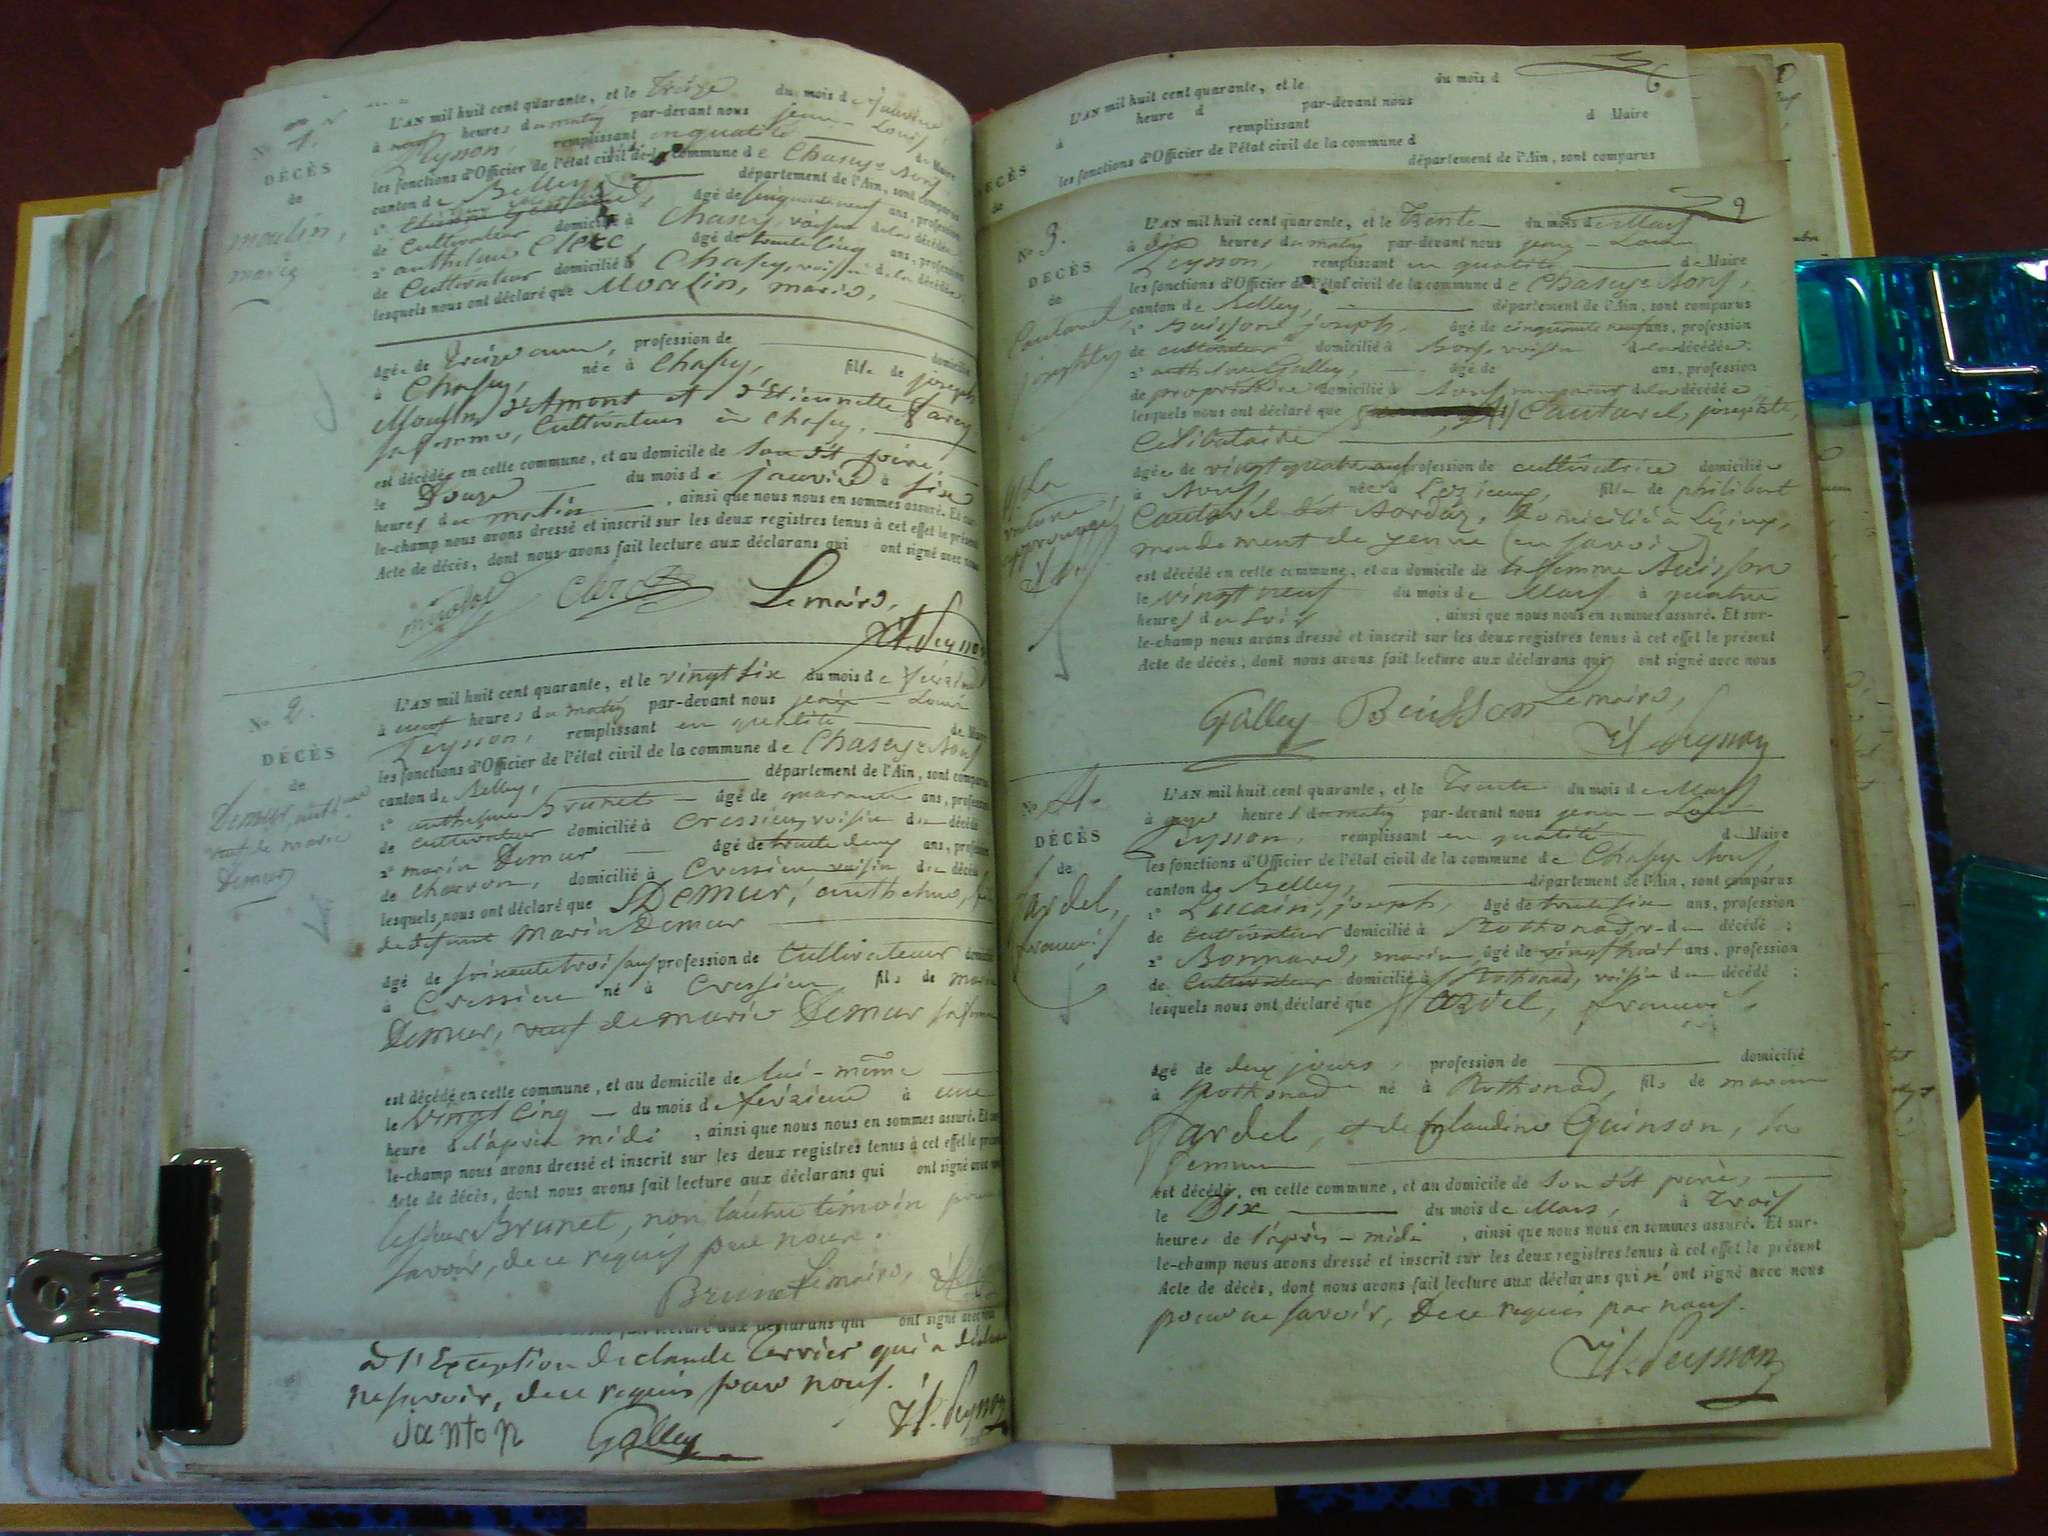 N° 1.
DÉCÈS
de
moulin,
marie
L'AN mil huit cent quarante, et le Treize du mois de janvier
à heures du matin par-devant nous jean-Louis
Peysson, remplissant en qualité de Maire
les fonctions d'Officier de l'état civil de la commune de Chasey-Bons
canton de Belley département de l'Ain, sont comparus
1° âgé de cinquante neuf ans, profession
de Cultivateur domicilié à Chasey, voisin de la décédée
2° anthelme Clerc, âgé de trente cinq ans, profession
de Cultivateur domicilié à Chasey, voisin de la décédée
lesquels nous ont déclaré que Moulin, marie,
âgée de treize ans, profession de domiciliée
à Chasey, née à Chasey, fille de joseph
Moulin d'Amont et d'Etiennette
sa femme, Cultivateurs à Chasey.
est décédée en cette commune, et au domicile de son dit père,
le Douze du mois de janvier à six
heures du matin, ainsi que nous nous en sommes assuré. Et sur-
le-champ nous avons dressé et inscrit sur les deux registres tenus à cet effet le présent
Acte de décès, dont nous avons fait lecture aux déclarans qui ont signé avec nous
Clerc Le maire,
Jl. Peysson
N° 2.
DÉCÈS
de
Demur, anthelme
veuf de marie
Demur
L'AN mil huit cent quarante, et le vingt six du mois de février
à heures du matin par-devant nous jean-Louis
Peysson, remplissant en qualité de Maire
les fonctions d'Officier de l'état civil de la commune de Chasey-Bons
canton de Belley, département de l'Ain, sont comparus
1° anthelme Brunet âgé de quarante ans, profession
de cultivateur domicilié à Cressieu, voisin du décédé
2° marin Demur âgé de trente deux ans, profession
de charron, domicilié à Cressieu voisin du décédé
lesquels nous ont déclaré que Demur, anthelme, fils
de défunt marin Demur
âgé de soixante trois ans profession de Cultivateur domicilié
à Cressieu né à Cressieu, fils de marin
Demur, veuf de marie Demur sa femme
est décédé en cette commune, et au domicile de lui-même
le vingt cinq du mois de février à une
heure de l'après midi, ainsi que nous nous en sommes assuré. Et sur-
le-champ nous avons dressé et inscrit sur les deux registres tenus à cet effet le présent
Acte de décès, dont nous avons fait lecture aux déclarans qui ont signé avec nous
le sieur Brunet, non l'autre témoin pour
savoir, de ce requis par nous.
Brunet Le maire,
ont signé avec nous
à l'Exception de claude Terrier qui a déclaré
ne savoir, de ce requis par nous.
janton Galley Jl. Peysson
L'AN mil huit cent quarante, et le du mois d
à heure d par-devant nous
remplissant d Maire
les fonctions d'Officier de l'état civil de la commune d
département de l'Ain, sont comparus
DÉCÈS
de
N° 3.
DÉCÈS
de
Cantarel,
josephte
L'AN mil huit cent quarante, et le Trente du mois de Mars
à dix heures du matin par-devant nous jean-Louis
Peysson, remplissant en qualité de Maire
les fonctions d'Officier de l'état civil de la commune de Chasey-Bons,
canton de Belley, département de l'Ain, sont comparus
1° Buisson joseph, âgé de cinquante neuf ans, profession
de cultivateur domicilié à Bons, voisin de la décédée;
2° anthelme Galley, âgé de ans, profession
de propriétaire domicilié à Bons de la décédée
lesquels nous ont déclaré que Cantarel, josephte,
Célibataire
âgée de vingt quatre ans profession de cultivatrice domiciliée
à Bons, née à fille de philibert
Cantarel dit domicilié à
mandement de yenne (en savoie)
est décédée en cette commune, et au domicile de la femme Buisson
le vingt neuf du mois de Mars à quatre
heures du soir, ainsi que nous nous en sommes assuré. Et sur-
le-champ nous avons dressé et inscrit sur les deux registres tenus à cet effet le présent
Acte de décès, dont nous avons fait lecture aux déclarans qui ont signé avec nous
Galley Buisson Le maire,
Jl. Peysson
N° 4.
DÉCÈS
de
Jardel,
françois
L'AN mil huit cent quarante, et le Trente du mois de Mars
à onze heures du matin par-devant nous jean-Louis
Peysson, remplissant en qualité de Maire
les fonctions d'Officier de l'état civil de la commune de Chasey-Bons,
canton de Belley, département de l'Ain, sont comparus
1° Lucain, joseph, âgé de trente six ans, profession
de cultivateur domicilié à Rothonod, v. du décédé;
2° Bonnard, marin, âgé de vingt huit ans, profession
de Cultivateur domicilié à Rothonod, voisin du décédé;
lesquels nous ont déclaré que Jardel, françois,
âgé de deux jours, profession de domicilié
à Rothonod né à Rothonod, fils de marin
Jardel, et de Claudine Guinson, sa
femme
est décédé, en cette commune, et au domicile de son dit père,
le Dix du mois de Mars, à trois
heures de l'après-midi, ainsi que nous nous en sommes assuré. Et sur-
le-champ nous avons dressé et inscrit sur les deux registres tenus à cet effet le présent
Acte de décès, dont nous avons fait lecture aux déclarans qui n'ont signé avec nous
pour ne savoir, de ce requis par nous.
Jl. Peysson